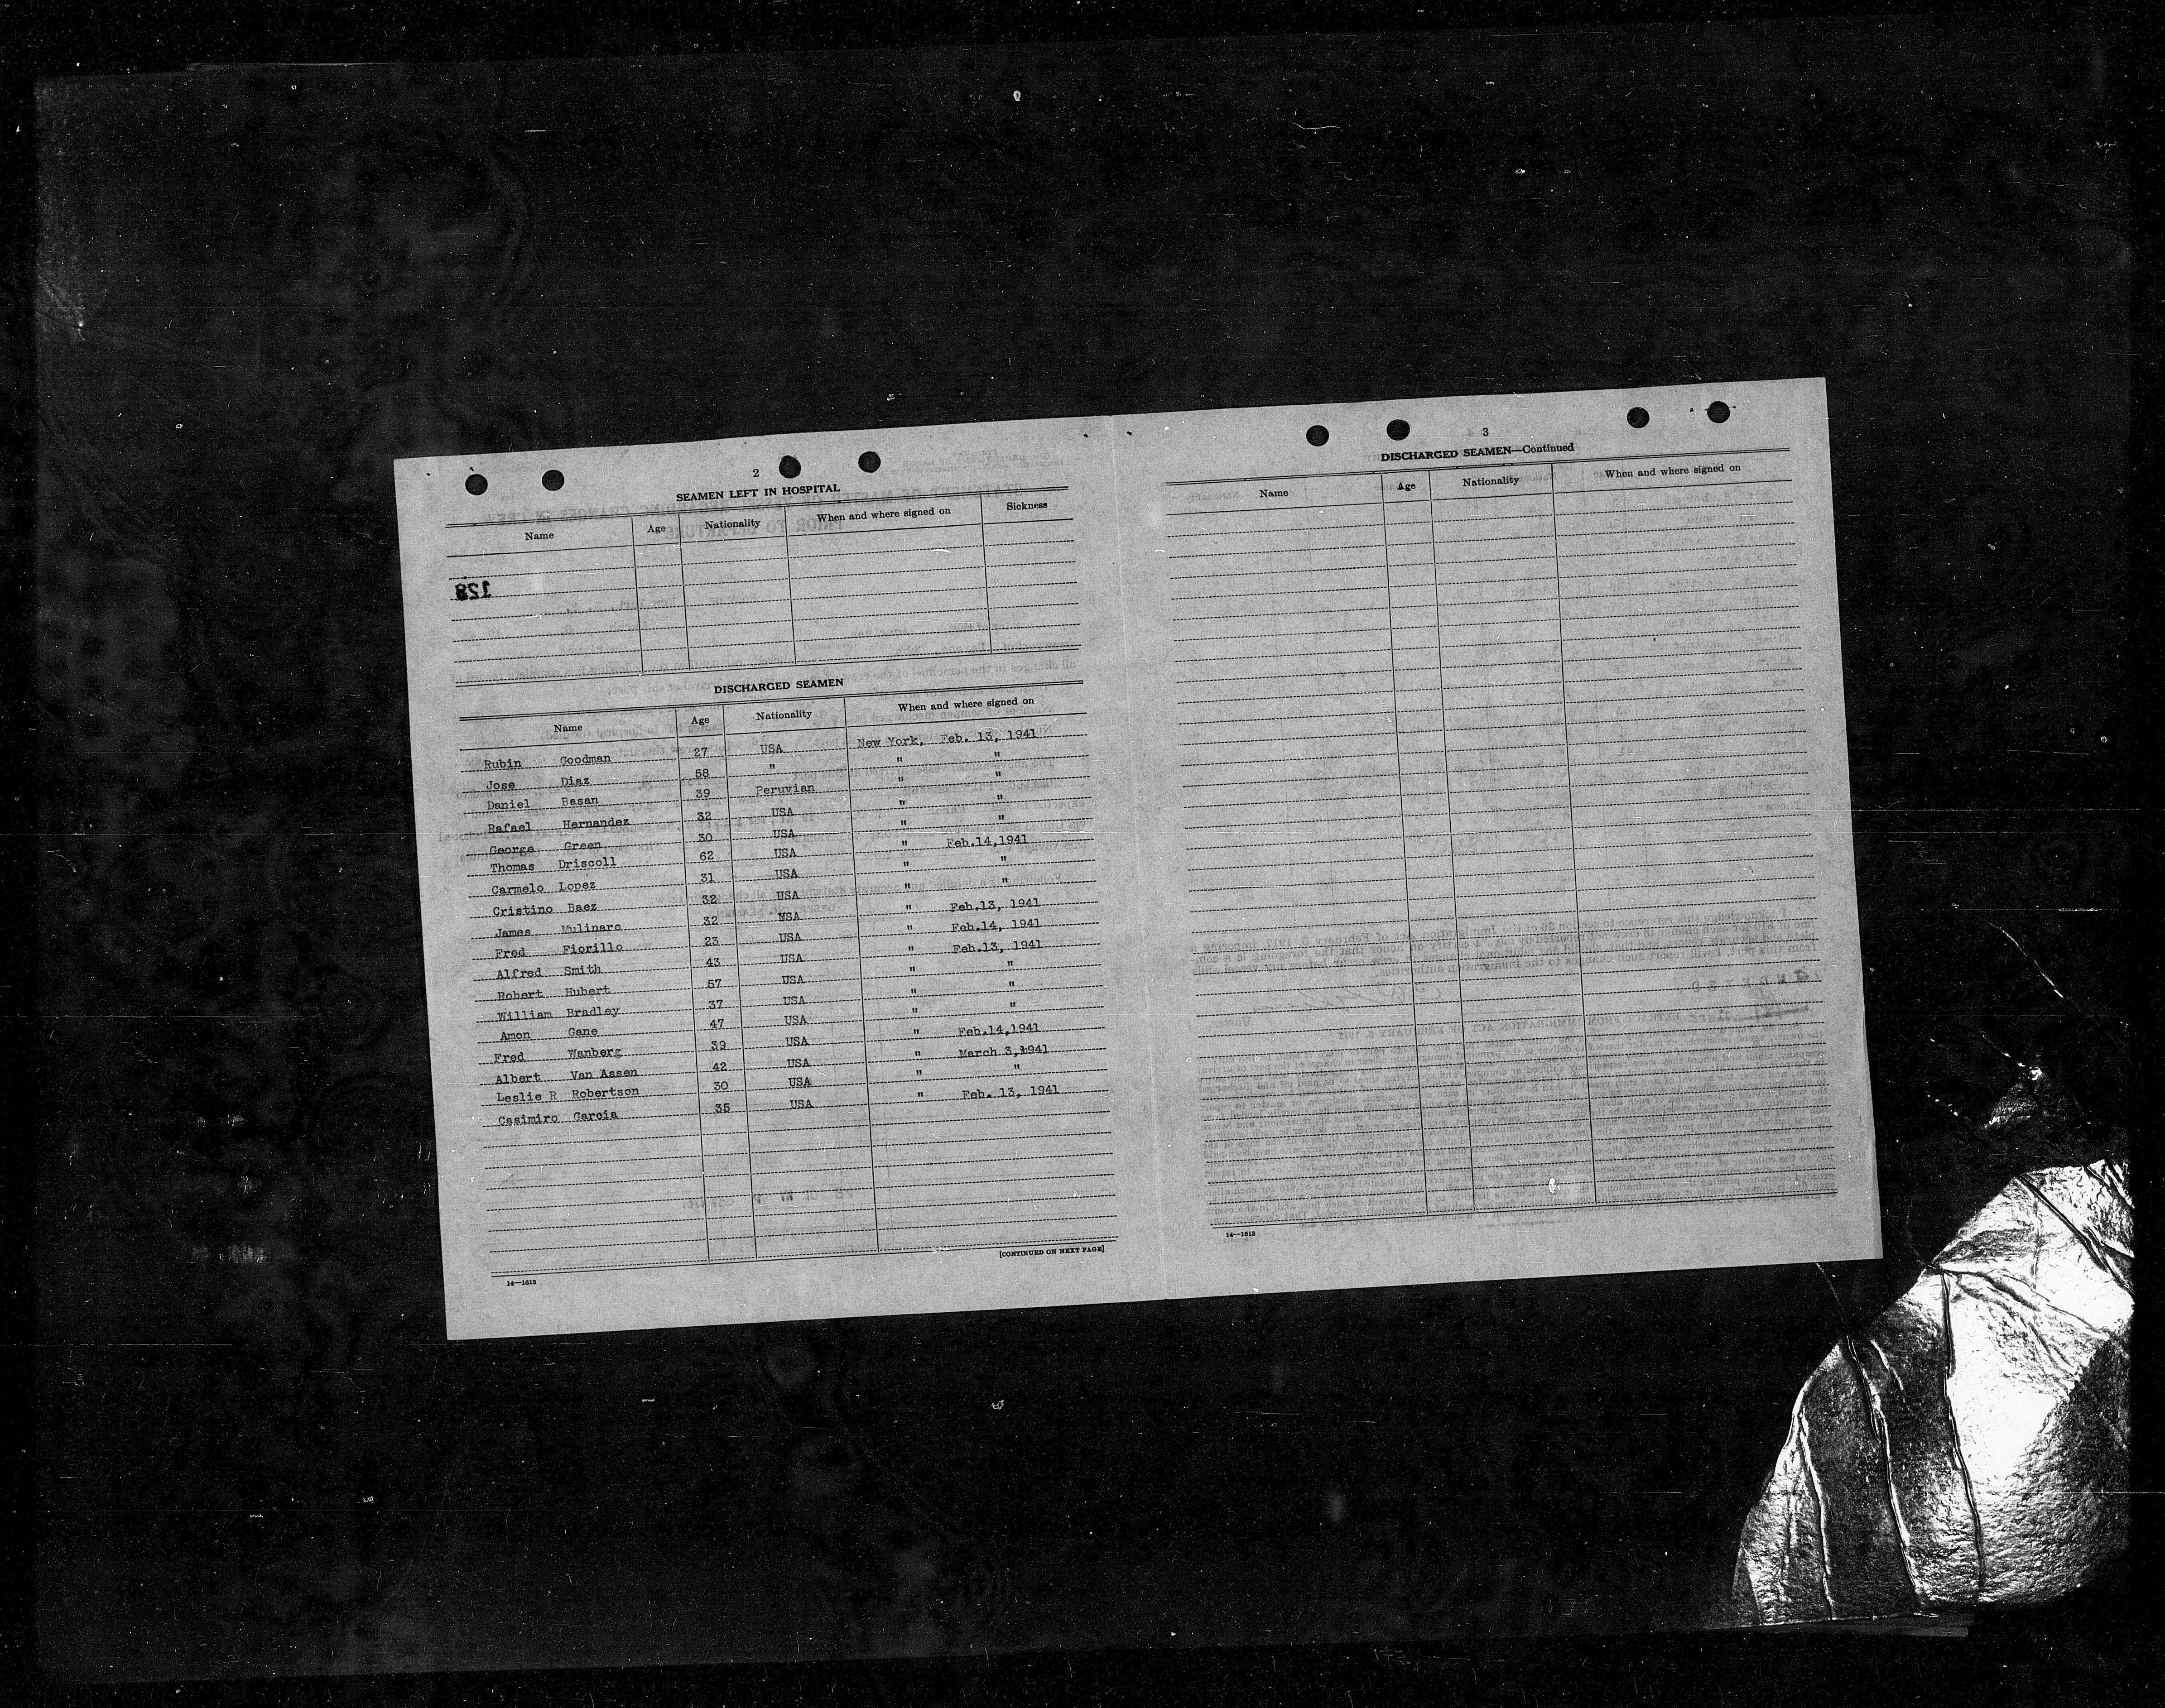 2
SEAMEN LEFT IN HOSPITAL
Name Age Nationality When and where signed on Sickness
128
DISCHARGED SEAMEN
Name Age Nationality When and where signed on
Rubin Goodman 27 USA New York, Feb. 13, 1941
Jose Diaz 58 " " "
Daniel Basan 39 Peruvian " "
Rafael Hernandez 32 USA " "
George Green 30 USA " "
Thomas Driscoll 62 USA " Feb.14,1941
Carmelo Lopez 31 USA " "
Cristino Baez 32 USA " "
James Mulinaro 32 USA " Feb.13, 1941
Fred Fiorillo 23 USA " Feb.14, 1941
Alfred Smith 43 USA " Feb.13, 1941
Robert Hubert 57 USA " "
William Bradley 37 USA " "
Amon Gane 47 USA " "
Fred Wanberg 39 USA " Feb.14,1941
Albert Van Assen 42 USA " March 3,1941
Leslie R Robertson 30 USA " "
Casimiro Garcia 35 USA " Feb. 13, 1941
[CONTINUED ON NEXT PAGE]
14—1613
3
DISCHARGED SEAMEN—Continued
Name Age Nationality When and where signed on
14—1613